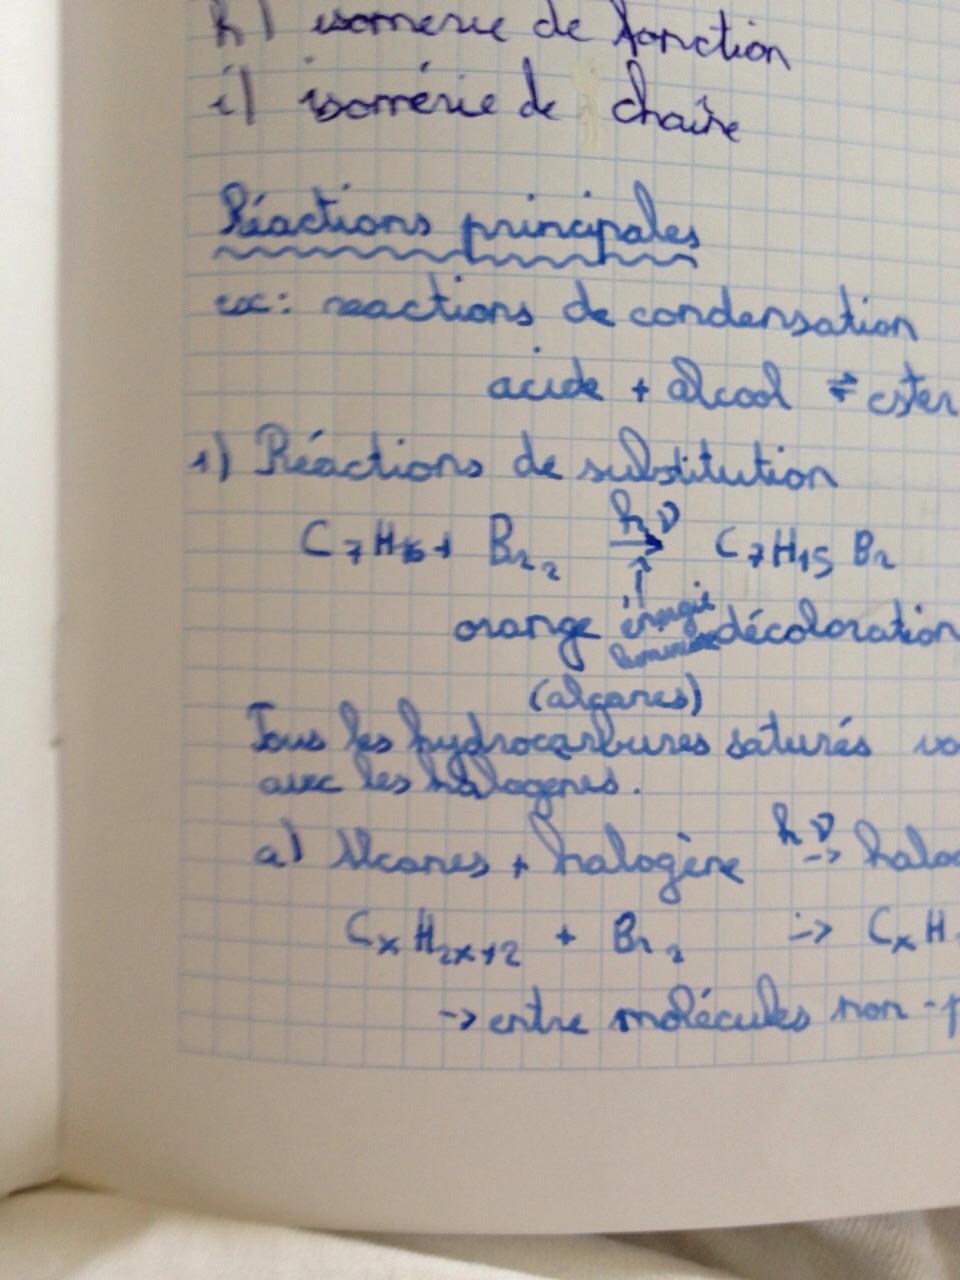 h) isomérie de fonction
i) isomérie de chaîne
Réactions principales
ex: réactions de condensation
acide + alcool ⇌ ester
1) Réactions de substitution
hν
C7H16 + Br2 → C7H15 Br
↑
orange énergie décoloration
lumineuse
(alcanes)
Tous les hydrocarbures saturés
avec les halogènes.
hν
a) Alcanes + halogène → haloc
CxH2x+2 + Br2 → CxH
→ entre molécules non-p